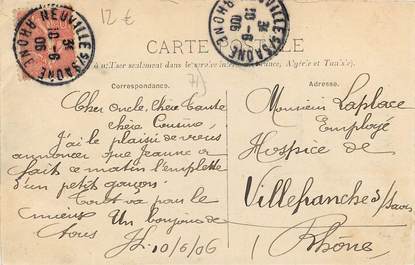 12 €
NEUVILLE S/SAONE
RHONE
10-6
06
NEUVILLE S/SAONE
RHONE
10-6
06
CARTE POSTALE
seulement dans le France, Algérie et Tunisie).
Correspondance.
Adresse.
Cher Oncle, chère Tante
chère Cousine,
J'ai le plaisir de vous
annoncer que Jeanne a
fait ce matin l'emplette
d'un petit garçon.
Tout va pour le
mieux Un bonjour de
tous
10/6/06
Monsieur Laplace
Employé
Hospice de
Villefranche s/Saône
Rhône